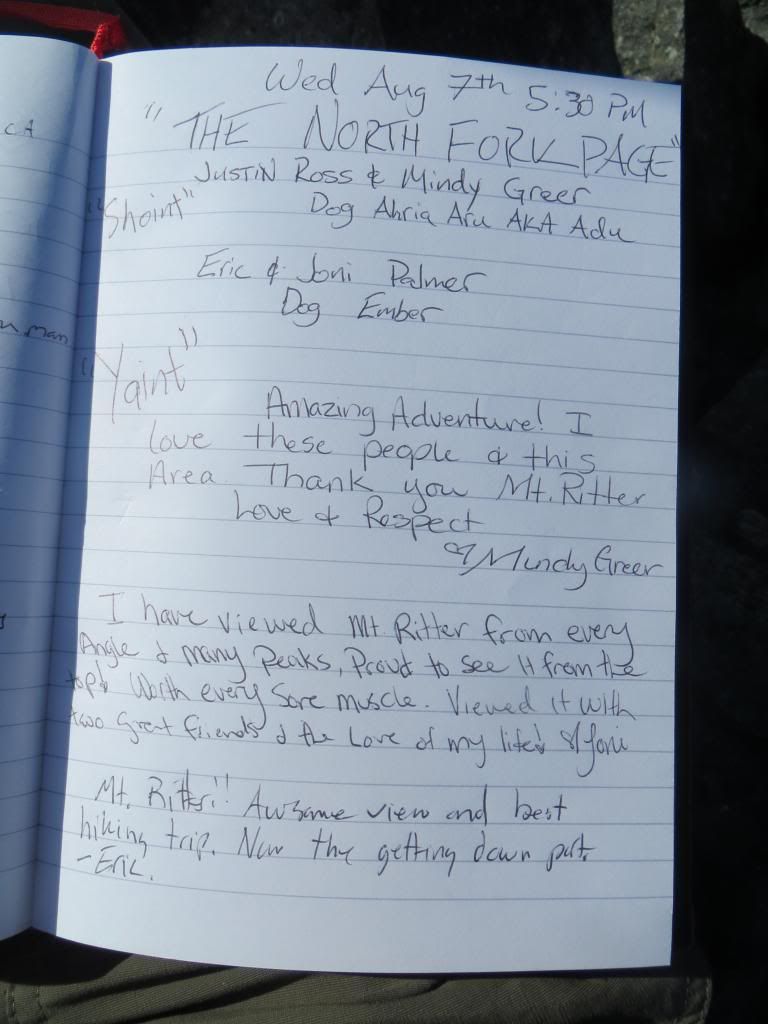 Wed Aug 7th 5:30 PM
"THE NORTH FORK PAGE"
JUSTIN Ross & Mindy Greer
"Shoint"
Dog Ahria Aru AKA Adu
Eric & Joni Palmer
Dog Ember
"Yaint"
Amazing Adventure! I
Love these people & this
Area. Thank you Mt. Ritter
Love & Respect
Mindy Greer
I have viewed Mt. Ritter from every
Angle & many Peaks, Proud to see it from the
top! Worth every sore muscle. Viewed it with
two Great friends & the Love of my life! Joni
Mt. Ritter!! Awsome view and best
hiking trip. Now the getting down part.
-Eric.
CA
man